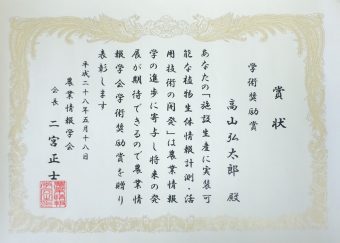 賞状
学術奨励賞
高山弘太郎 殿
あなたの「施設生産に実装可
能な植物生体情報計測・活
用技術の開発」は農業情報
学の進歩に寄与し将来の発
展が期待できるので農業情
報学会学術奨励賞を贈り
表彰します
平成二十八年五月十八日
農業情報学会
会長 二宮正士